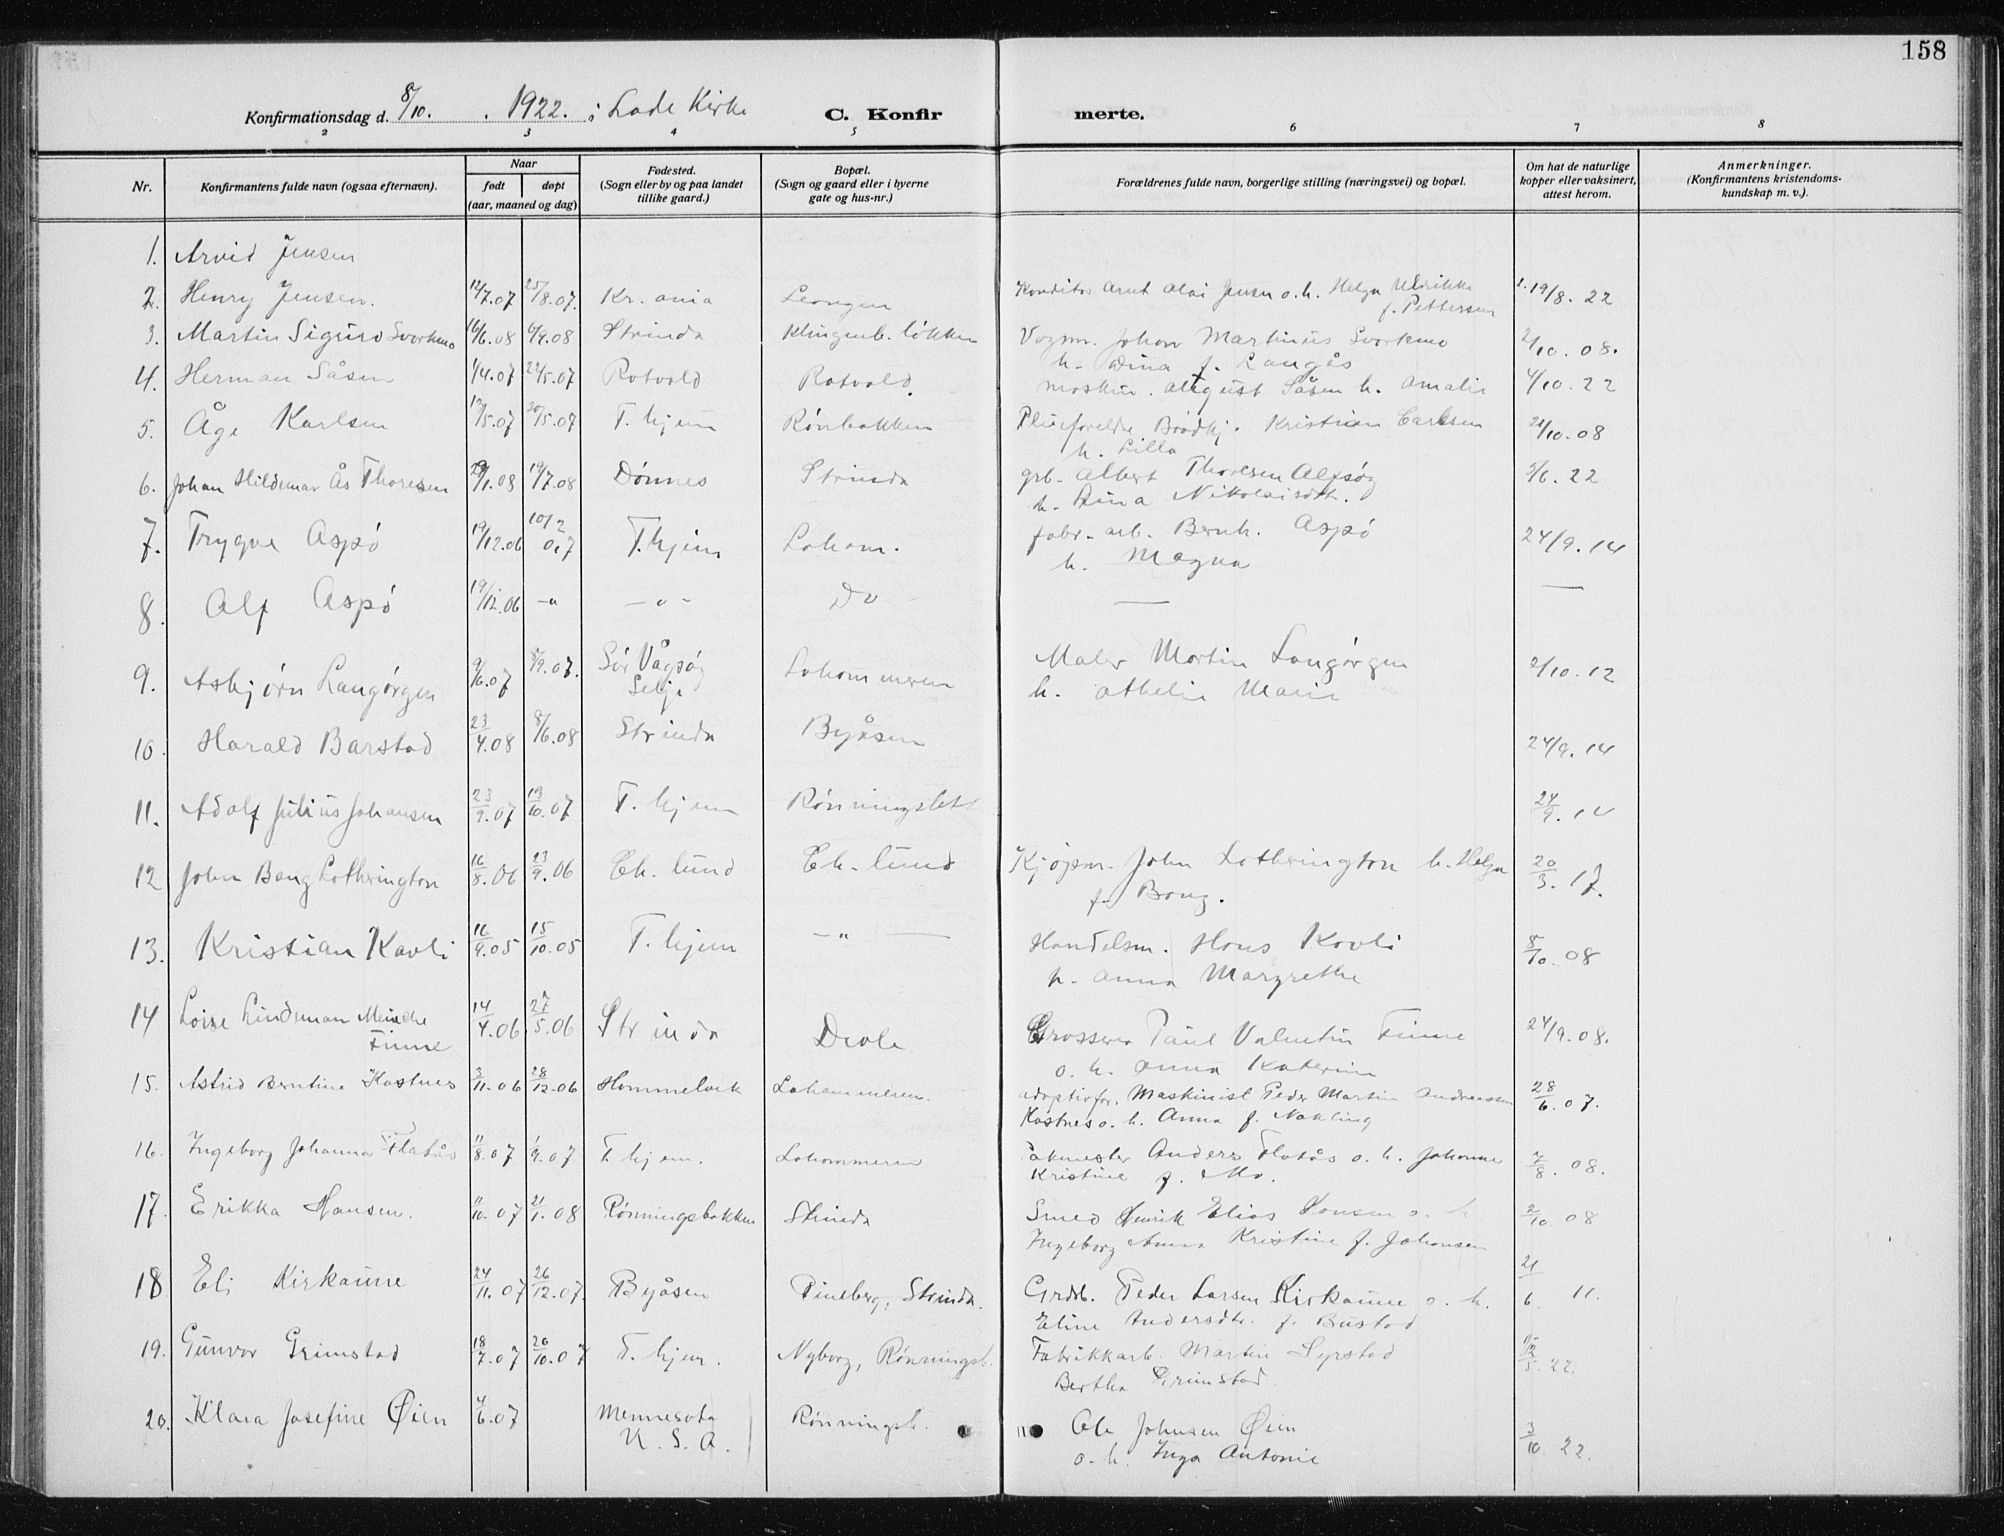 158
Konfirmationsdag d. 8/10. 1922. i Lade Kirke C. Konfirmerte.
2 3 4 5 6 7 8
Nr. Konfirmantens fulde navn (ogsaa efternavn). Naar født døpt (aar, maaned og dag) Fødested. (Sogn eller by og paa landet tillike gaard.) Bopæl. (Sogn og gaard eller i byerne gate og hus-nr.) Forældrenes fulde navn, borgerlige stilling (næringsvei) og bopæl. Om hat de naturlige kopper eller vaksinert, attest herom. Anmerkninger. (Konfirmantens kristendoms-kundskap m. v.).
1. Arvid Jensen
2. Henry Jensen. 12/7.07 25/8.07. Kr. ania Leangen Konditor Arnt Jensen o. h. Helga Ulrikke f. Pettersen 19/8. 22
3. Martin Sigurd Svorkmo 16/6.08 6/9.08 Strinda Klingenb. løkken Vognm. Johan Martinus Svorkmo h. Dina f. Langås 2/10. 08.
4. Herman Såsen 1/4.07 22/5.07 Rotvold Rotvold. Maskin. August Såsen h. Amalie 4/10. 22
5. Åge Karlsen 12/5.07 20/5.07 T. hjem Rønbakken Pleieforeldre Brødkj. Kristian Carlsen h. Lilla 21/10. 08
6. Johan Hildemar Ås Thoresen 29/1.08 19/7.08 Dønnes Strinda grb. Albert Thoresen h. Dina Nikolaisdtr. 5/6. 22
7. Trygve Aspö 19/12.06 10/2 07 T.hjem Laham. fabr-arb. Bernh. Aspö h. Magna 24/9. 14
8. Alf Aspö 19/12.06 -"- -"- Do — —
9. Asbjørn Langørgen 9/6.07 8/9.07. Sør Vågsøy Selje Lahammeren Maler Martin Langørgen h. Athelie Marie 2/10. 12
10. Harald Barstad 23/4.08 8/6.08 Strinda Byåsen 24/9. 14
11. Adolf Julius Johansen 23/9.07 13/10.07 T. hjem Rønningslett 24/9. 14
12 John Bang Lotherington 16/8.06 23/9.06 Ch. lund Ch. lund Kjøpm. John Lotherington h. Helga f. Bang. 20/3. 17.
13. Kristian Kavli 16/9.05 15/10.05 T. hjem -"- Handelsm. Hans Kavli h. Anna Margrethe 8/10. 08
14 Loise Lindeman Meincke Finne 14/4.06 27/5.06 Strinda Devle Grosserer Paul Valentin Finne o. h. Anna Katerine 24/9. 08.
15. Astrid Berntine Hastnes 3/11.06 28/12.06 Hommelvik Lahammeren. adoptivfor. Maskinist Peder Martin Andreassen Hastnes o. h. Anna f. Nakling 28/6. 07.
16. Ingeborg Johanna Flatås 11/8.07 1/9.07 T. hjem. Lahammeren Pakmester Anders Flatås o. h. Johanne Kristine f. Mo. 7/8. 08.
17. Erikka Hansen. 11/10.07 21/1.08 Rønningsbakken Strinda Smed Henrik Elias Hansen o. h Ingeborg Anna Kristine f. Johansen 2/10 08
18 Eli Kirkaune 24/11.07 26/12.07. Byåsen Pineberg, Strinda. Grdb. Peder Larsen Kirkaune o. h. Eline Andersdtr. f. Bustad 21/6. 11.
19. Gunvor Grimstad 18/7.07 20/10.07 T. hjem. Nyborg, Rønningsb. Fabrikkarb. Martin Syrstad Bertha Grimstad. 12/5. 22.
20. Klara Josefine Øien 4/6.07 Mennesota U. S. A. Rønningsb. Ole Johnsen Øien o. h. Inga Antonie 3/10. 22.